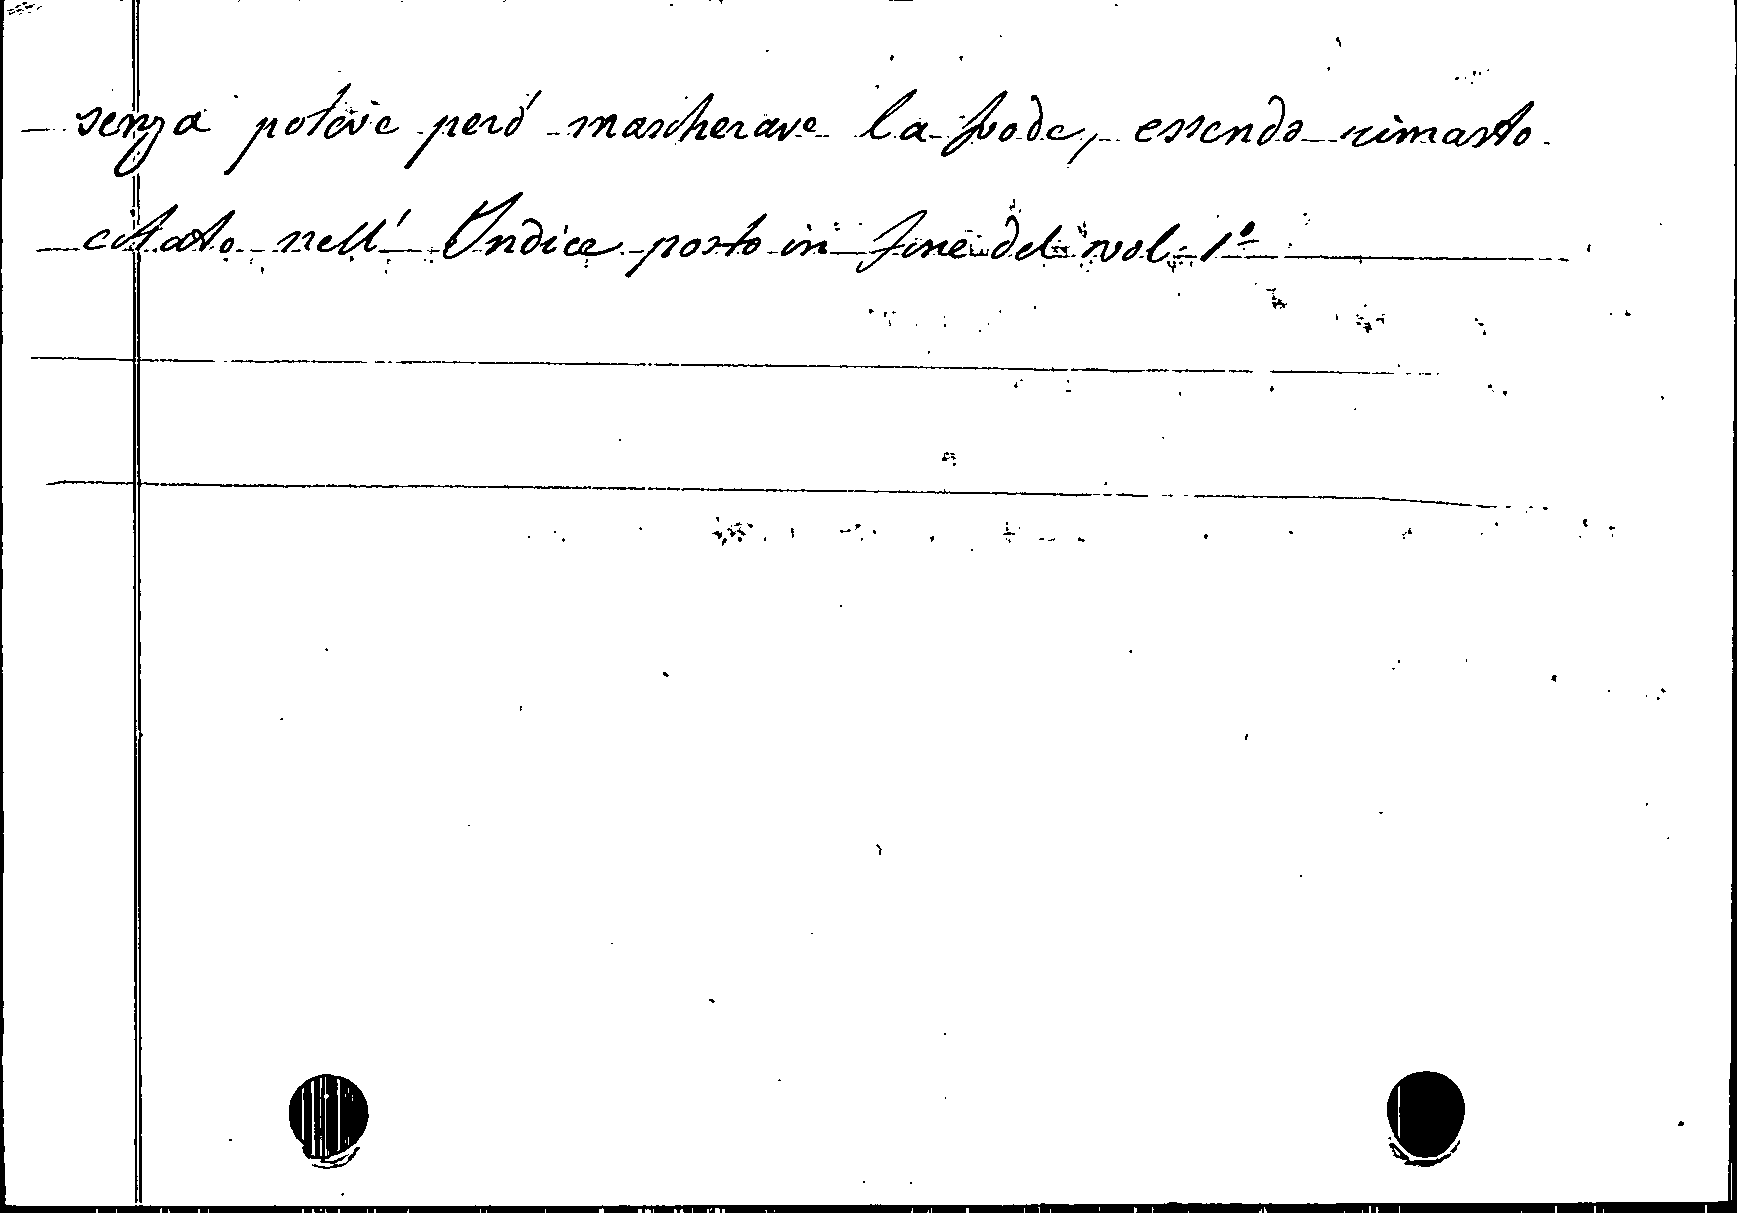 senza potere però mascherare la frode, essendo rimasto
citato nell' Indice posto in fine del vol. 1º